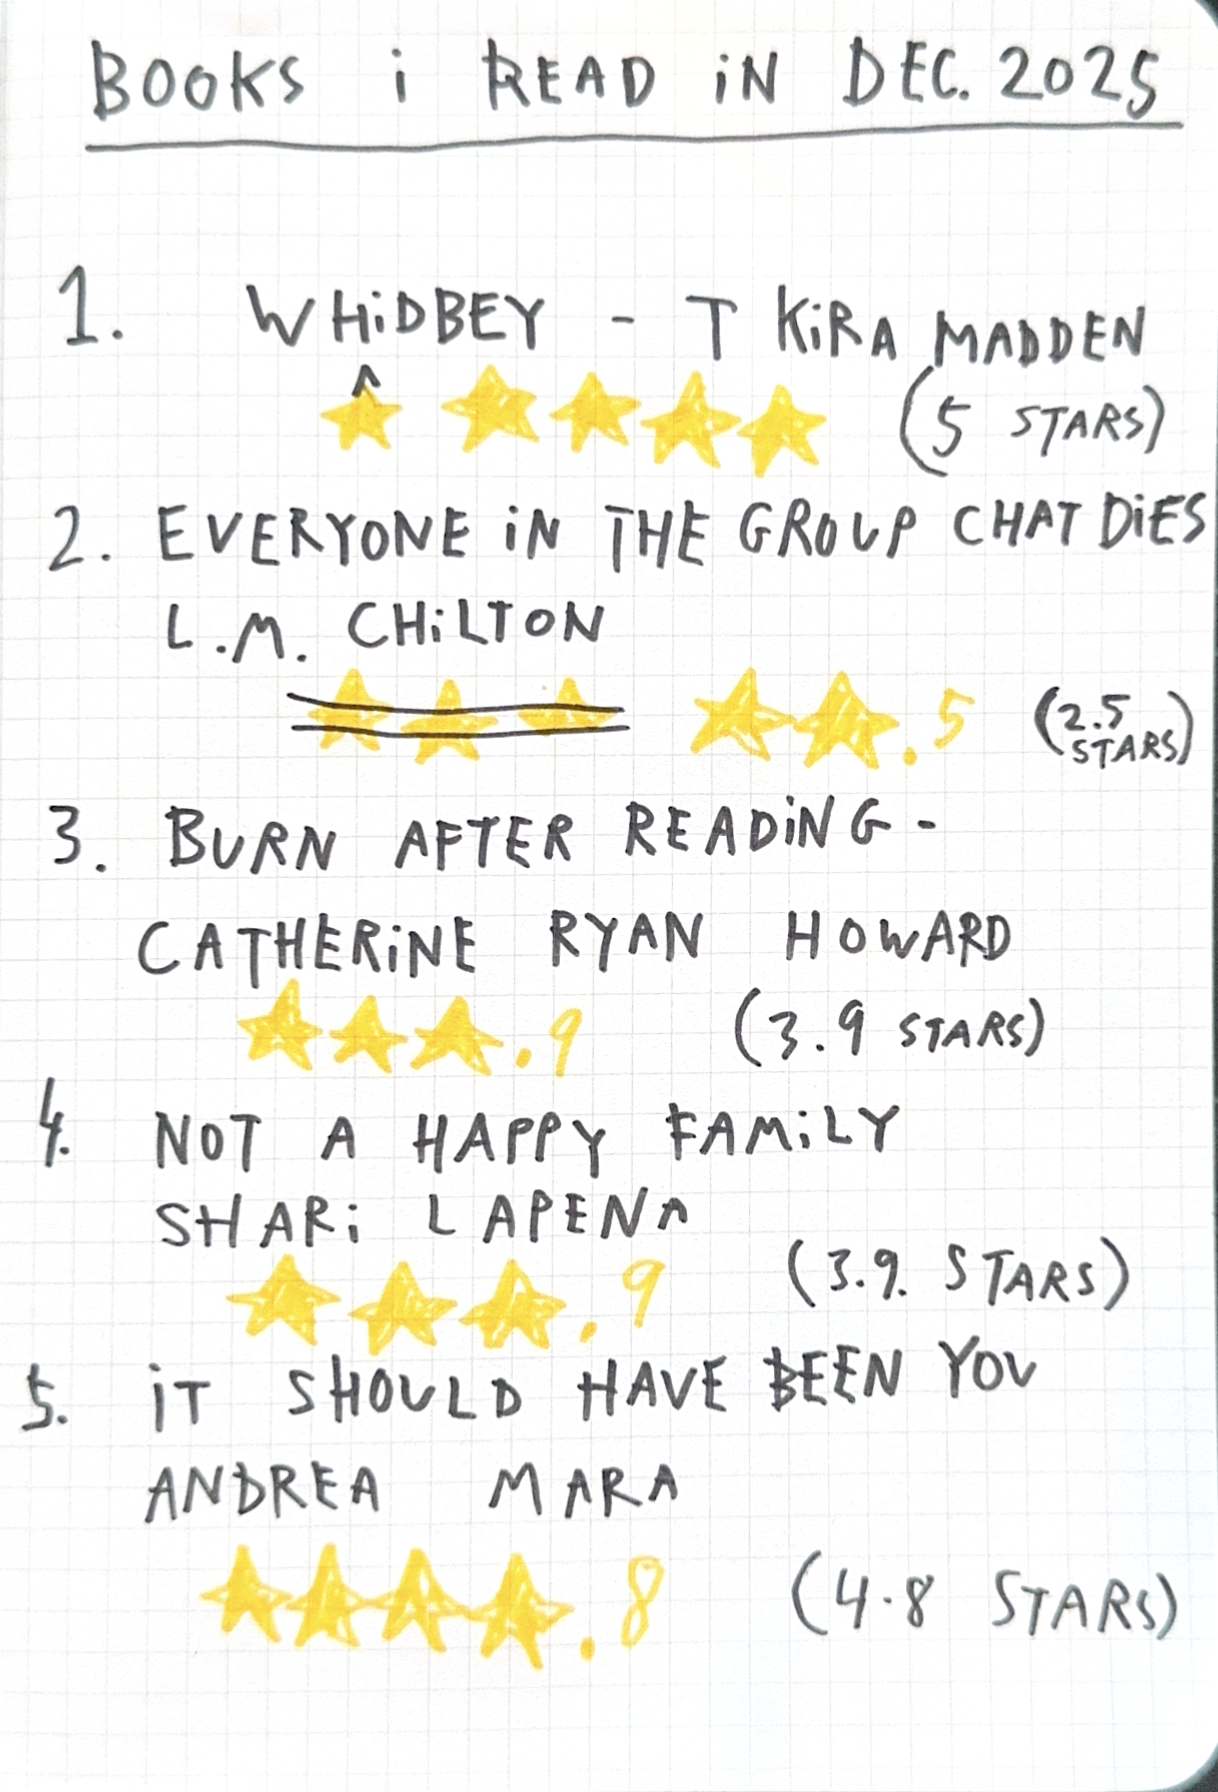 BOOKS i READ iN DEC. 2025
1. WHiDBEY - T KiRA MADDEN
^
★ ★ ★ ★ ★ (5 STARS)
2. EVERYONE iN THE GROUP CHAT DiES
L.M. CHiLTON
★★★ ★★.5 (2.5 STARS)
3. BURN AFTER READiNG -
CATHERiNE RYAN HOWARD
★★★.9 (3.9 STARS)
4. NOT A HAPPY FAMiLY
SHARi LAPENA
★★★.9 (3.9. STARS)
5. iT SHOULD HAVE BEEN YOU
ANDREA MARA
★★★★.8 (4.8 STARS)